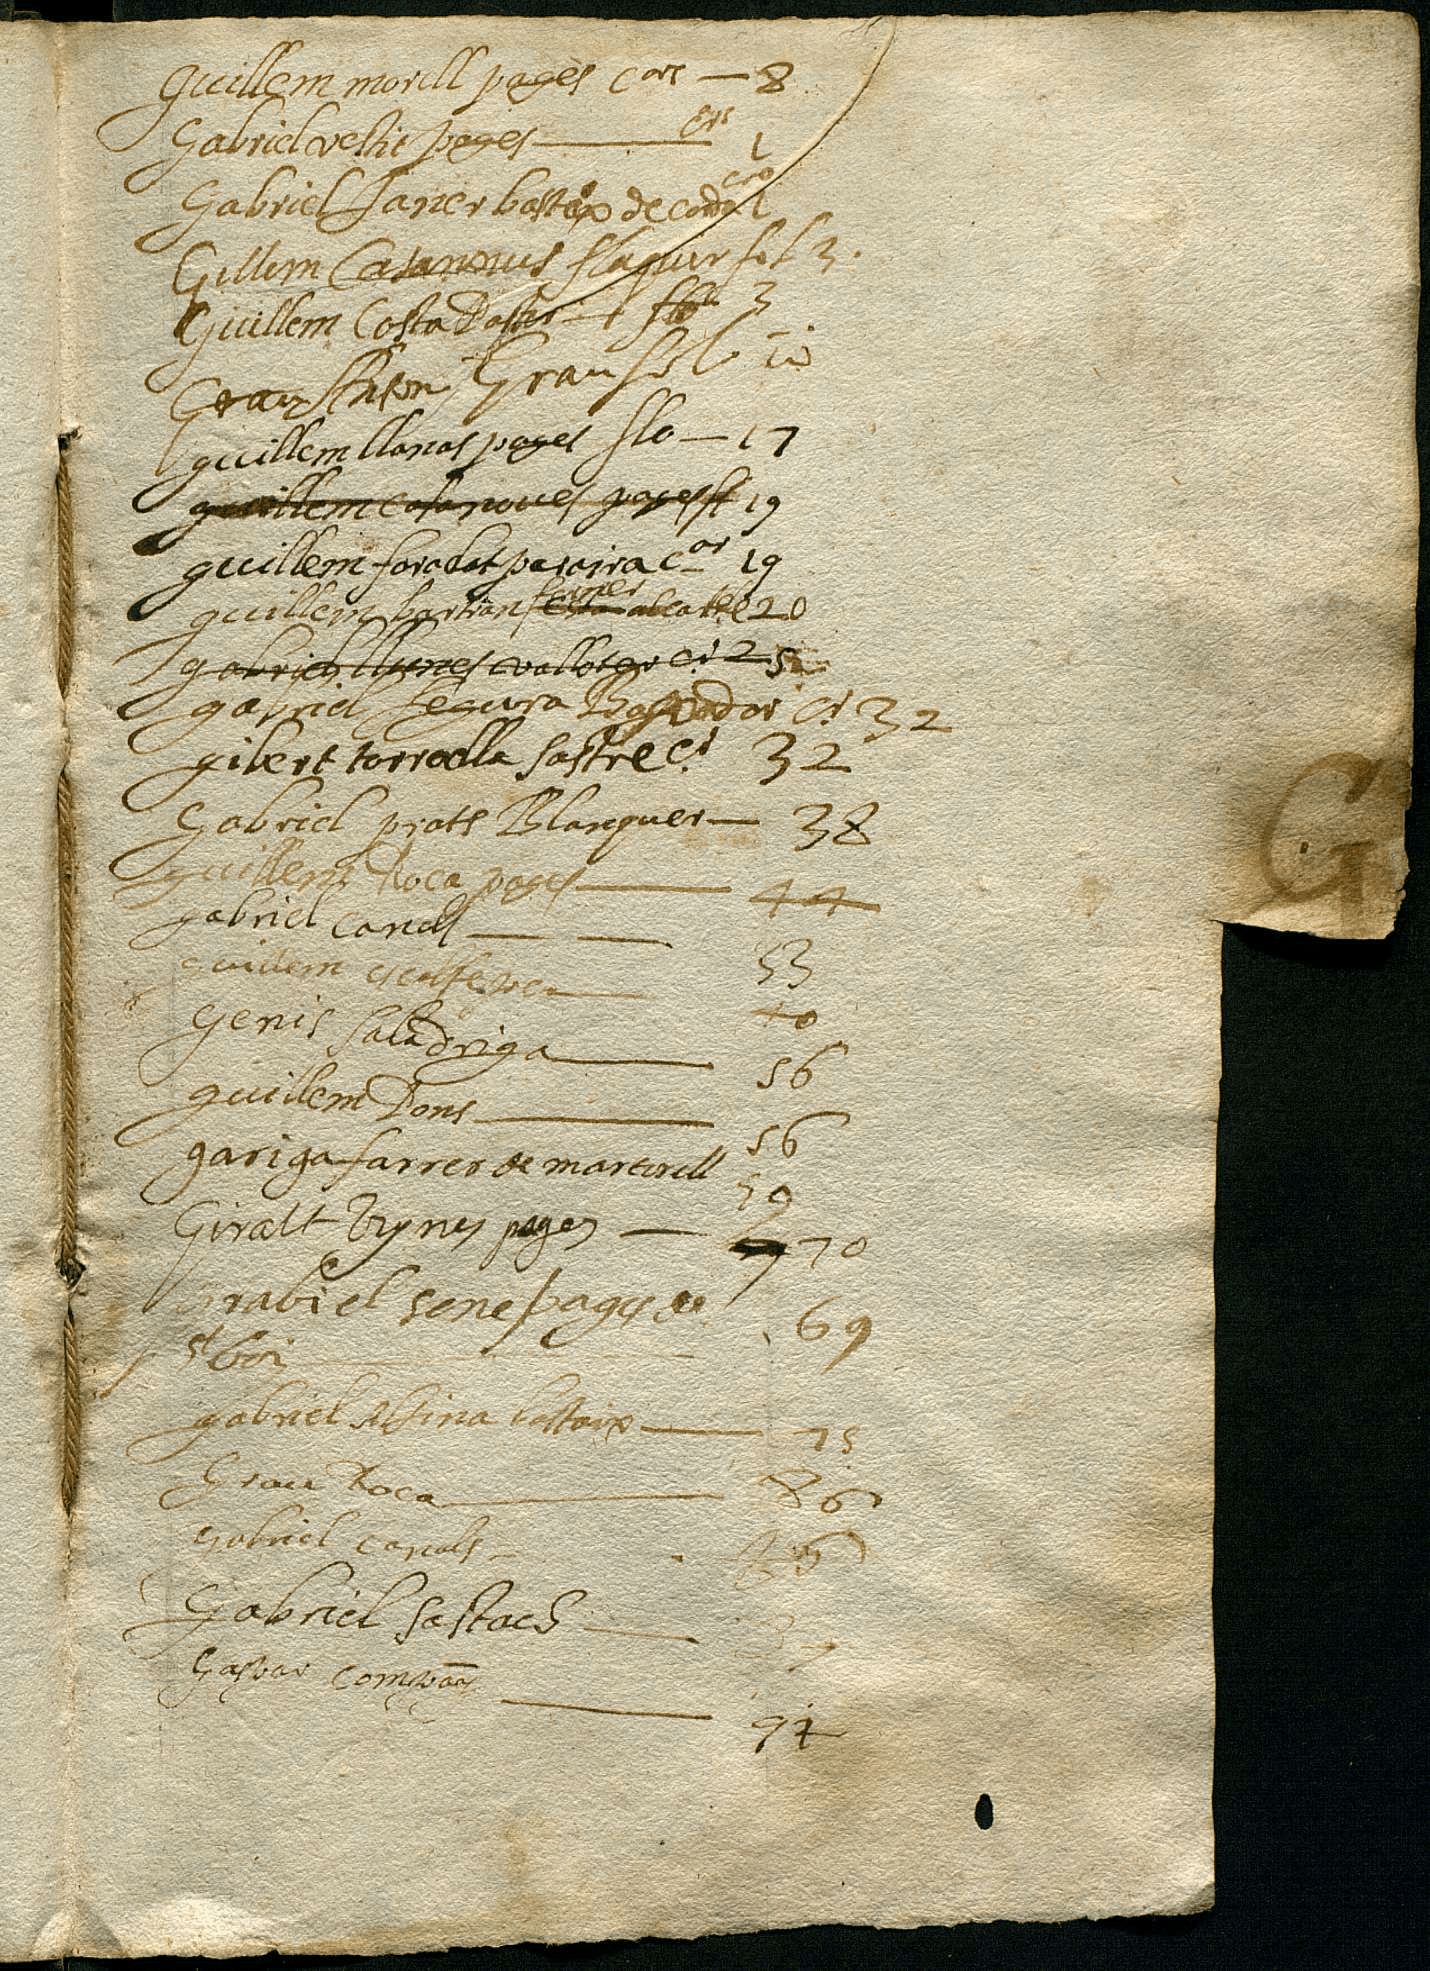 guillem morell pages cors — 8
Gabriel vestit pages — cors 1
Gabriel Janer bastaix de 1
Gillem Casanoves flaquer fol 3.
Guillem Costa — 3
Grau Anton Grau fol
guillem llanas pages flo — 17
guillem casanoves pages 19
guillem foradat paraira car 19
guillem bartran ferrer 20
gabriel llunes 25
gabriel segura cr 32
gibert torroella sastre cr 32
Gabriel prats Blanquer — 38
guillem Roca pages — 44
gabriel canals — — 53
guillem — 40
Genis saladriga — 56
guillem Pons — 56
gariga farrer de martorell 59
Giralt vynes pages — 70
Grabiel sene pages de 69
st boi
gabriel alsina bastaix — 75
Grau Roca — 86
Gabriel canals —
Gabriel sastaes — 87
Gaspar — 94
G